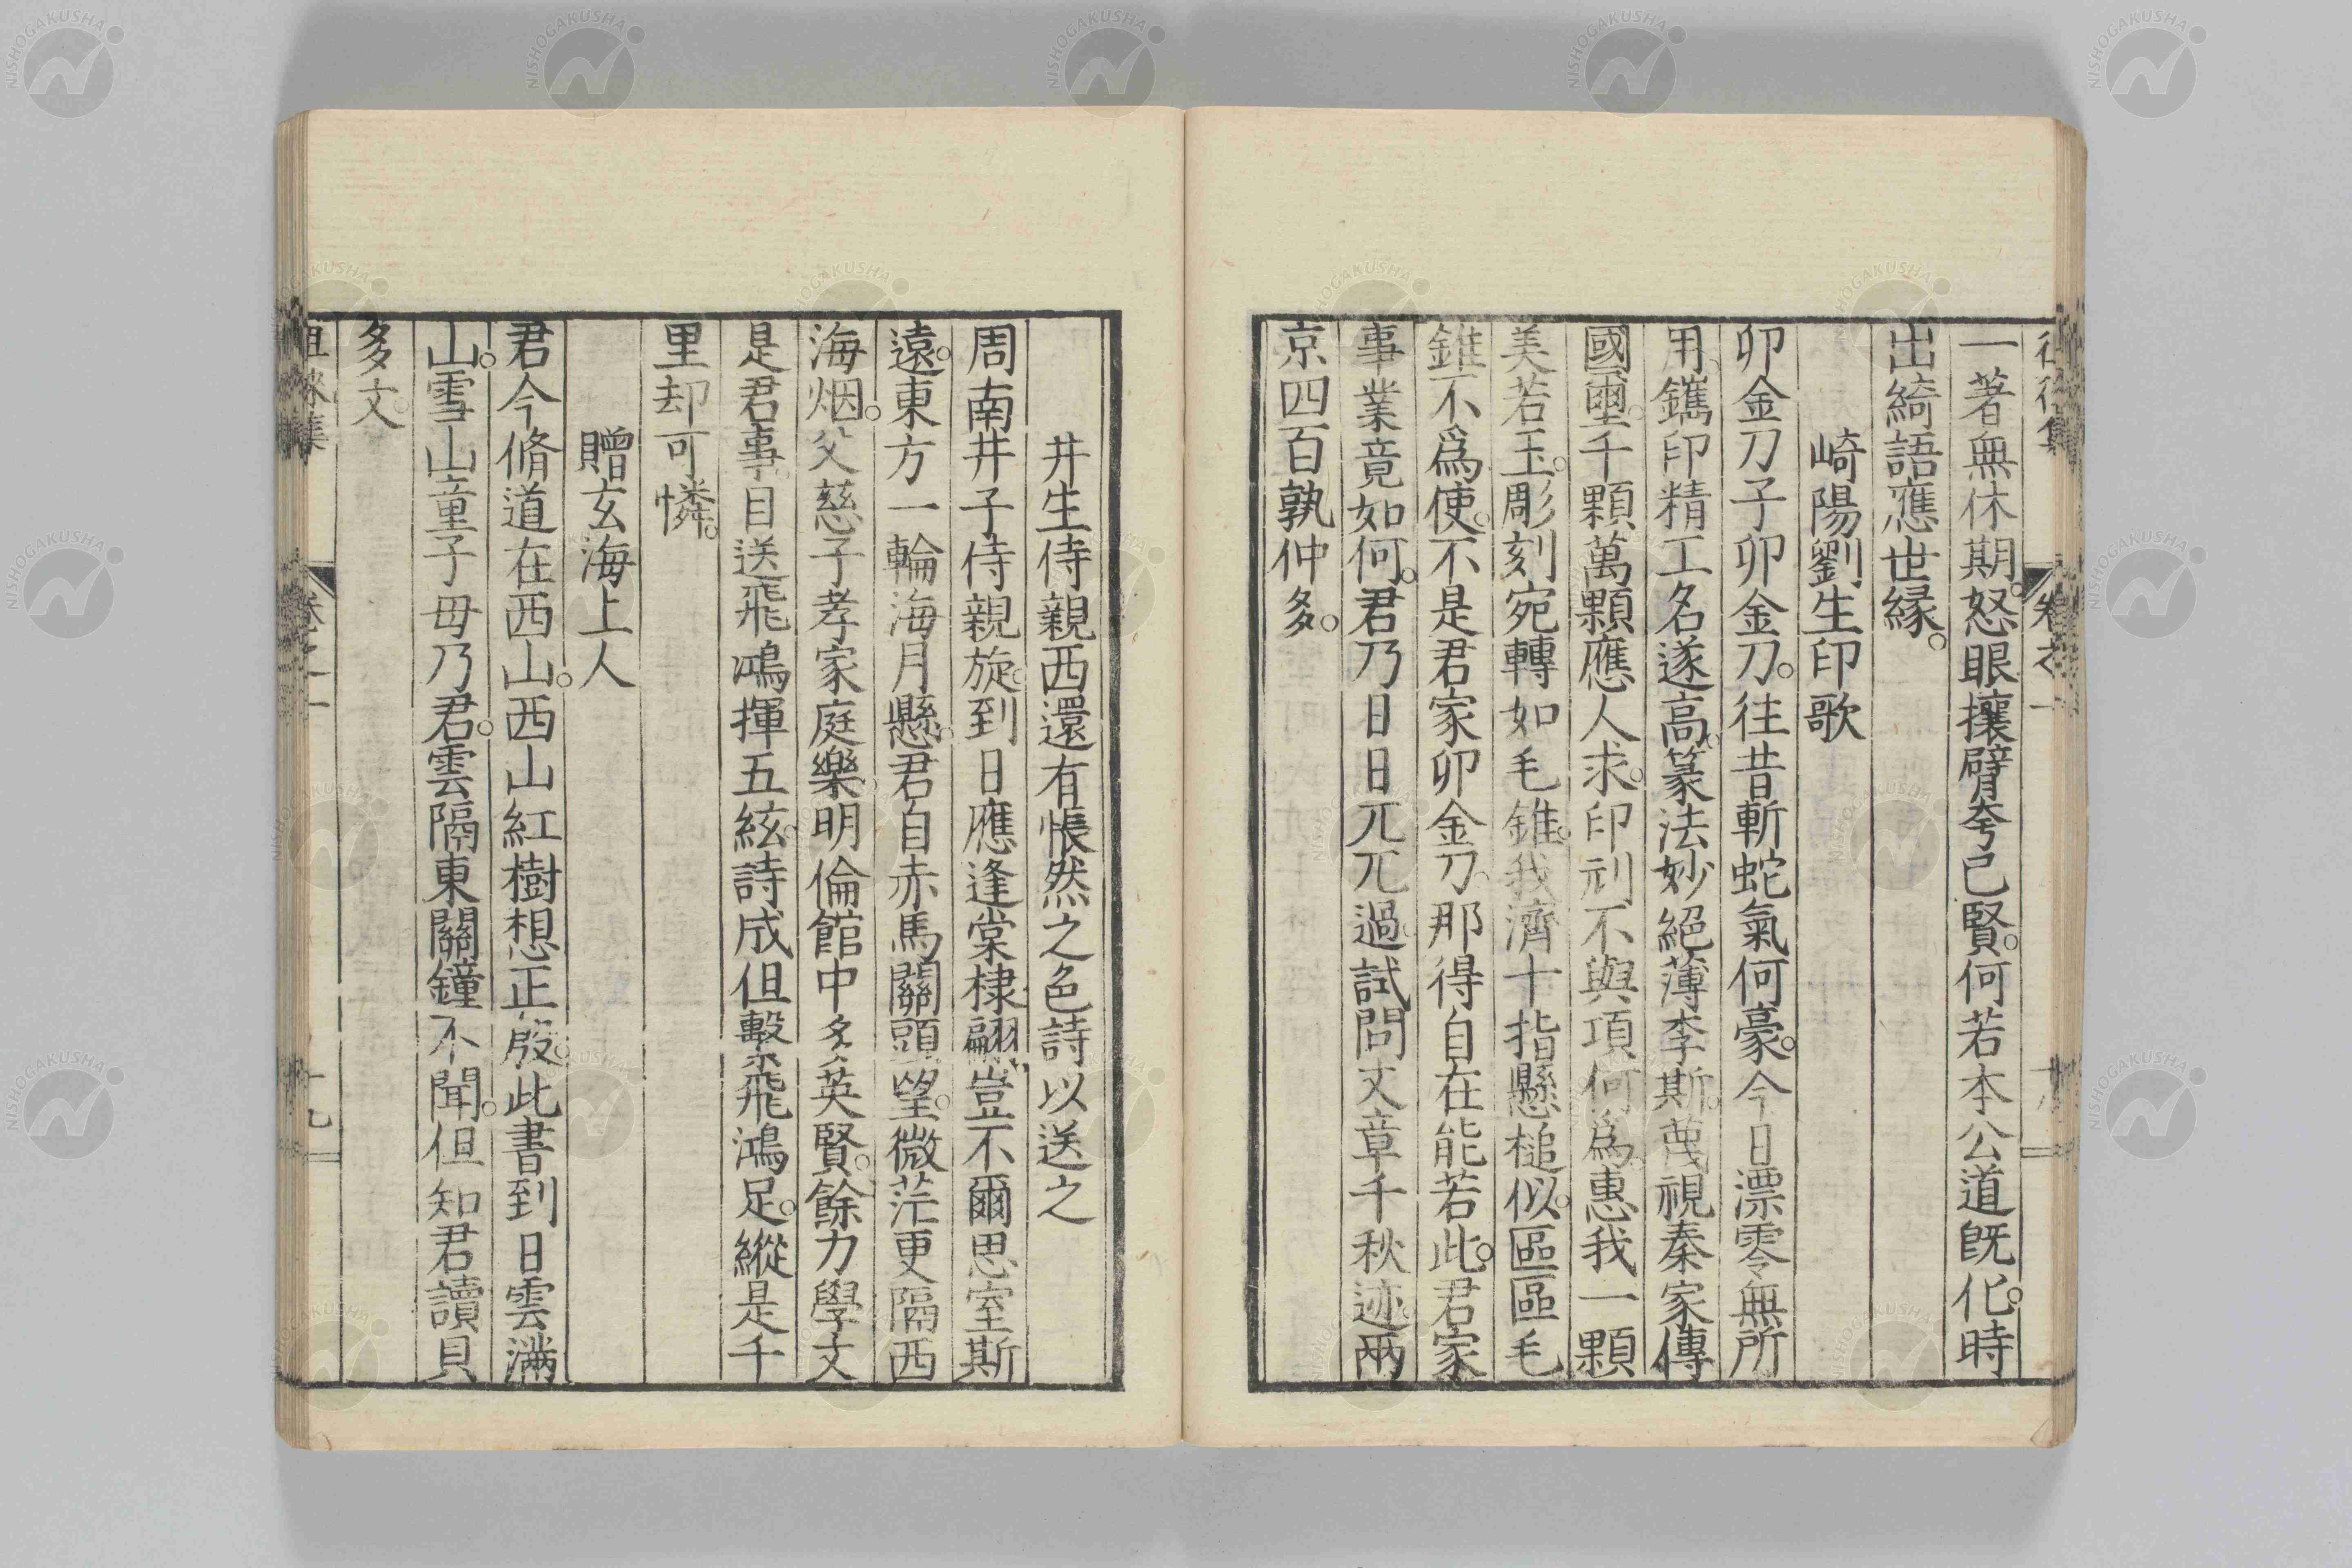 徂徠集
卷之一
一著無休期。怒眼攘臂夸己賢。何若本公道旣化。時
出綺語應世緣。
崎陽劉生印歌
卯金刀子卯金刀。往昔斬蛇氣何豪。今日漂零無所
用。鐫印精工名遂高。篆法妙絕薄李斯。蔑視秦家傳
國璽。千顆萬顆應人求。印刓不與項何爲。惠我一顆
美若玉。彫刻宛轉如毛錐。我濟十指懸槌似。區區毛
錐不爲使。不是君家卯金刀。那得自在能若此。君家
事業竟如何。君乃日日兀兀過。試問文章千秋迹。兩
京四百孰仲多。
井生侍親西還有悵然之色詩以送之
周南井子侍親旋。到日應逢棠棣翩。豈不爾思室斯
遠。東方一輪海月懸。君自赤馬關頭望。微茫更隔西
海烟。父慈子孝家庭樂。明倫館中多英賢。餘力學文
是君事。目送飛鴻揮五絃。詩成但繫飛鴻足。縱是千
里却可憐。
贈玄海上人
君今脩道在西山。西山紅樹想正殷。此書到日雲滿
山。雪山童子毋乃君。雲隔東關鐘不聞。但知君讀貝
多文。
徂徠集
卷之一
十九
NISHOGAKUSHA